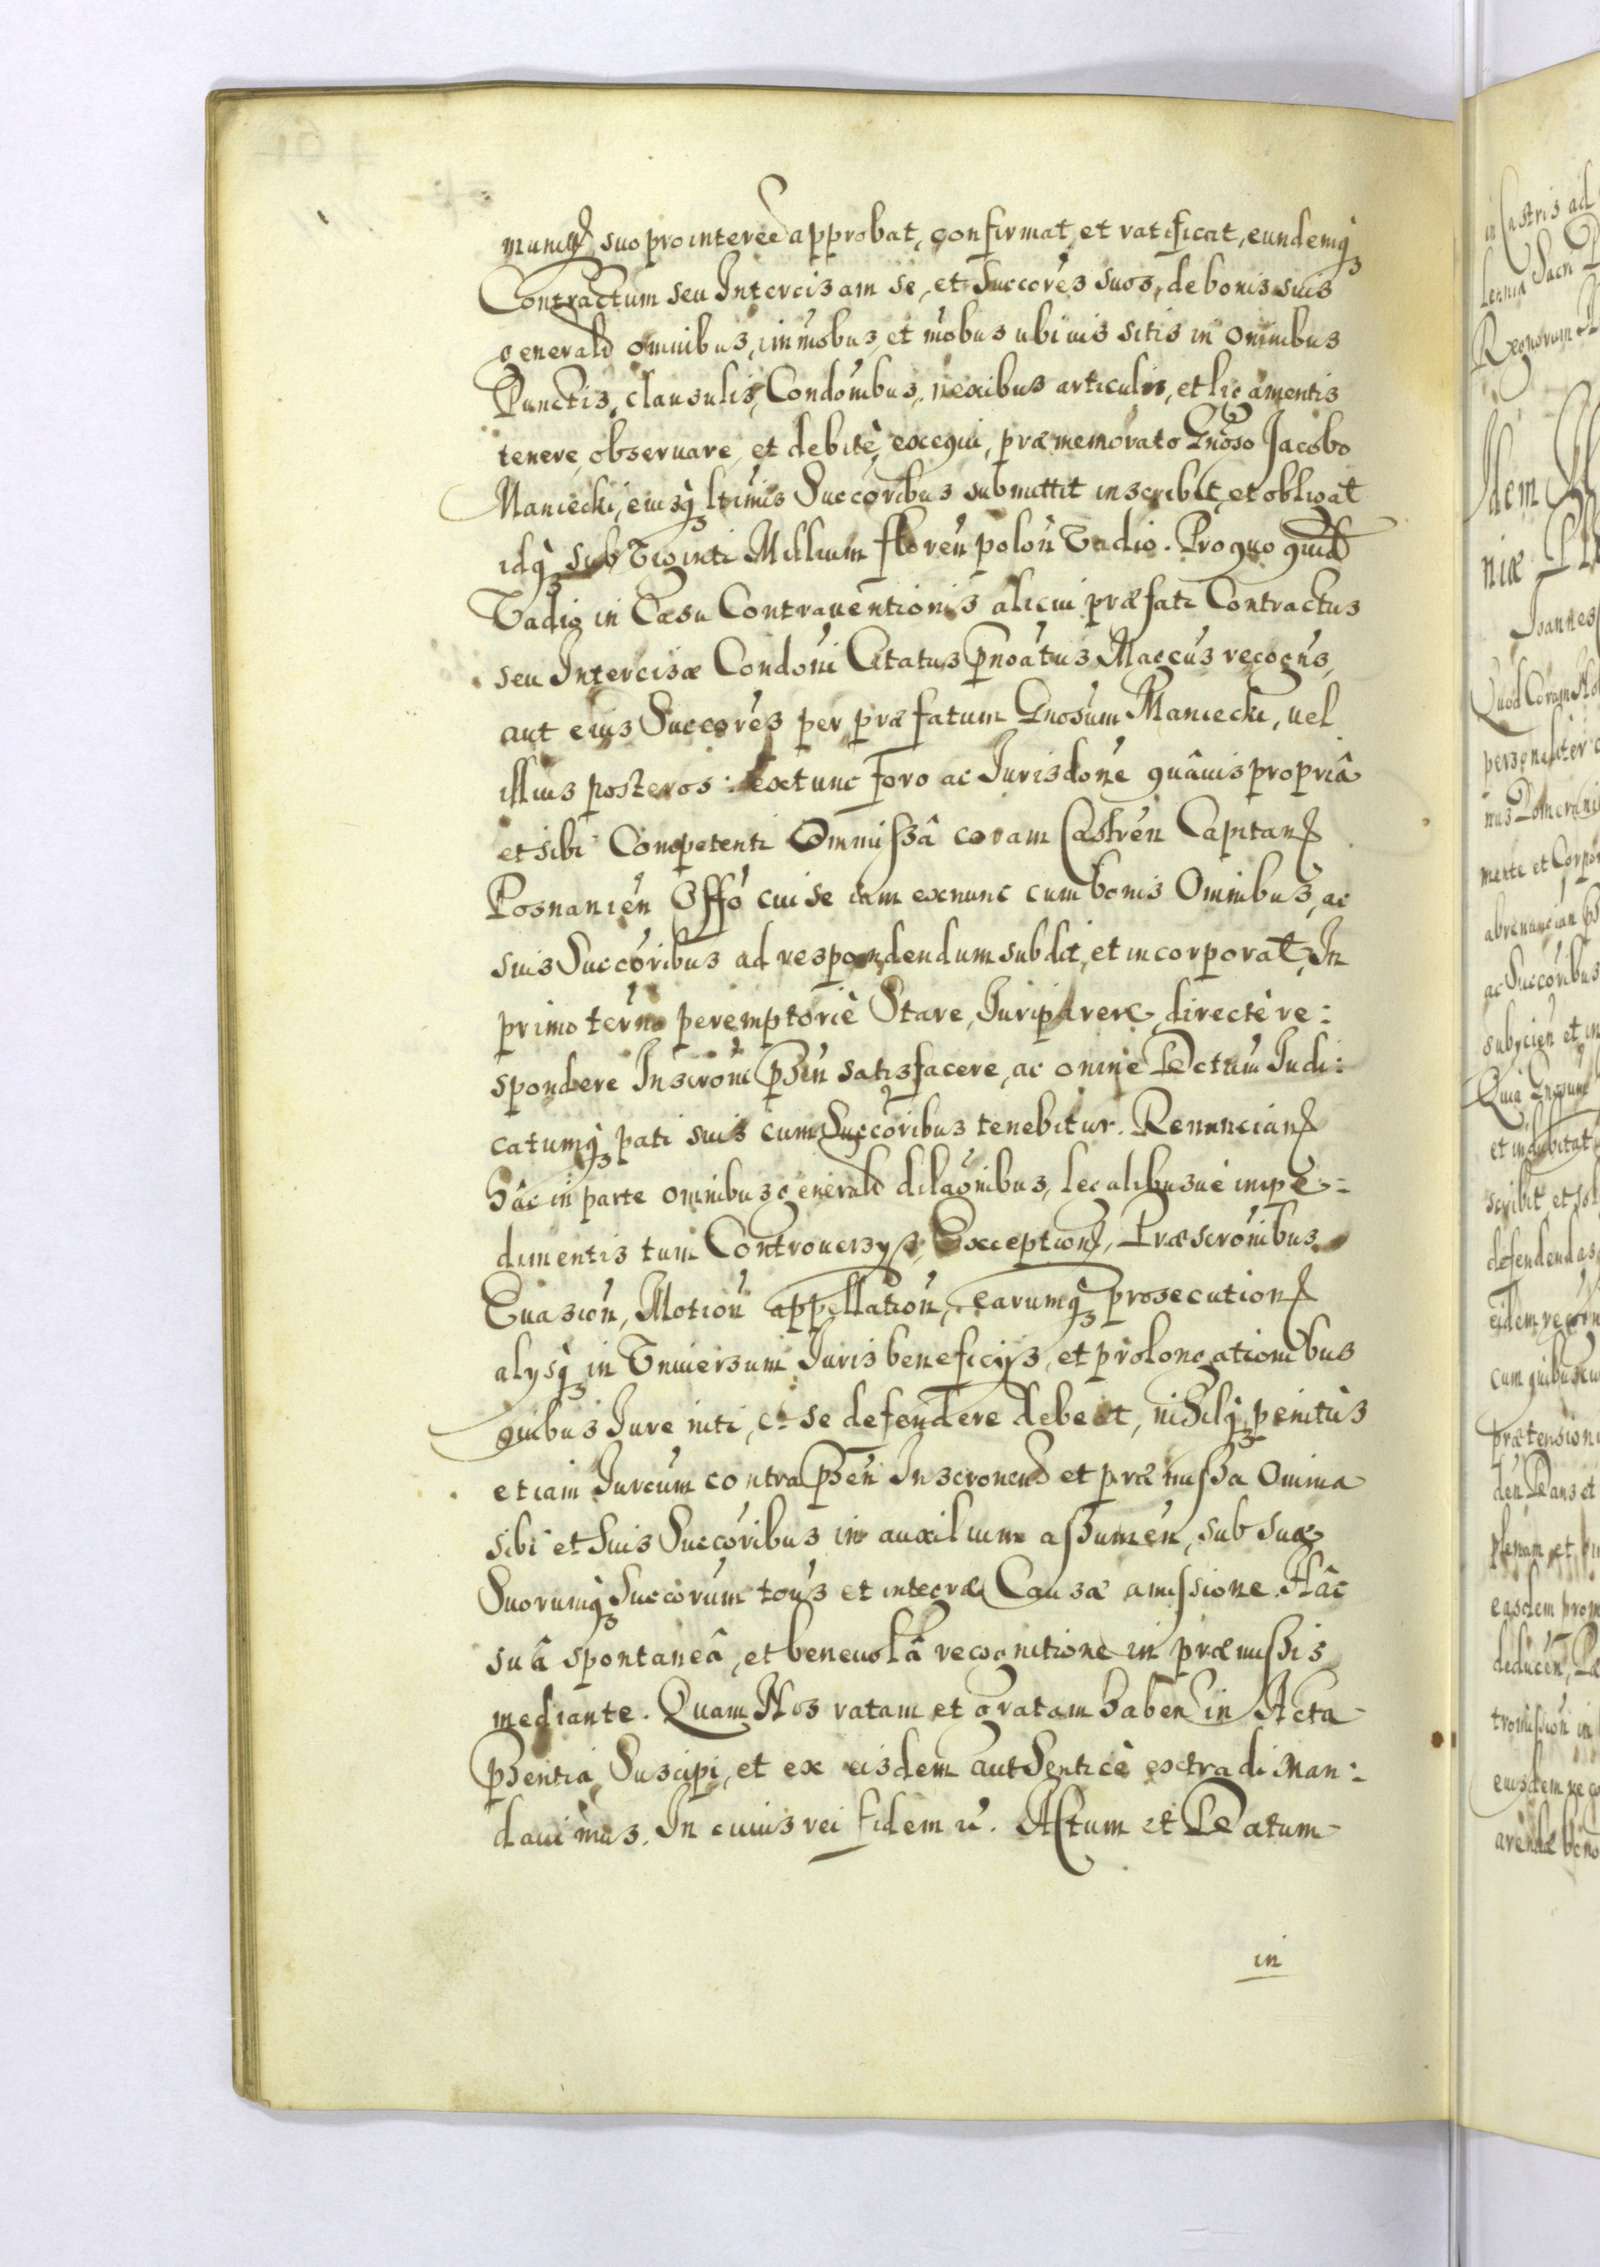 suo pro interee approbat, confirmat, et ratificat, eundemq́ȝ
Contractum seu Intercisam se, et Succores suos, de bonis suis
generald omnibus, immobus, et mobus ubi uis sitis in omnibus
Punctis, clausulis, Condonibus, nexibus articulis, et ligamentis
tenere, observare, et debitè, exequi, præmemorato Gnoso Jacobo
Maniecki, eiusqȝ ltimis Succoribus submittit inscribit, et obligat
idqȝ sub Triginti Millium floren polon Vadio. Pro quo quid
Vadio in Casu Contrauentionis alicui præfati Contractus
seu Intercisæ Condoni Citatus pnoatus Magcus recogns,
aut eius Succores per præfatum Gnosum Maniecki, uel
illius posteros: extunc foro ac Jurisdone quâuis propriâ
et sibi Competenti Ommissâ coram Castren Capitan
Posnanien Offo cui se iam exnunc cum bonis Omnibus, ac
suis Succoribus ad respondendum subdit, et incorporat, In
primo termo peremptoriè Stare, Juri parere, directè re:
spondere Inscroni psen satisfacere, ac omne Dectum Judi:
catumqȝ pati suis cum Succoribus tenebitur. Renuncian
hâc in parte omnibus generald dilaonibus, legalibusuè impe:
dimentis tum Controuersys, Exception, Præscronibus
Euasion, Motion appellation, earumqȝ prosecution
alysqȝ in Vniuersum Juris beneficijs, et prolongationibus
quibus Jure niti, et se defendere debeat, nihilqȝ penitùs
etiam Jurcum contra psen Inscronem et præmissa Omnia
sibi et Suis Succoribus in auxilium assumen, sub suæ
Suorumqȝ Succorum tous et integræ Causæ amissione. Hâc
suâ spontaneâ, et beneuolâ recognitione in præmissis
mediante. Quam Nos ratam et gratam haben in Acta
psentia Suscipi, et ex eisdem authenticè extradi Man:
dauimus. In cuius rei fidem. Actum et Datum
in
in Castris ad
Regnorum
Idem
niæ
Joannes
Quod Coram
personaliter
mente et Corpor
ac Succoribus
et indubitat
scribit et
defendendas
cum quibus
prætension
plenam et
easdem
eiusdem